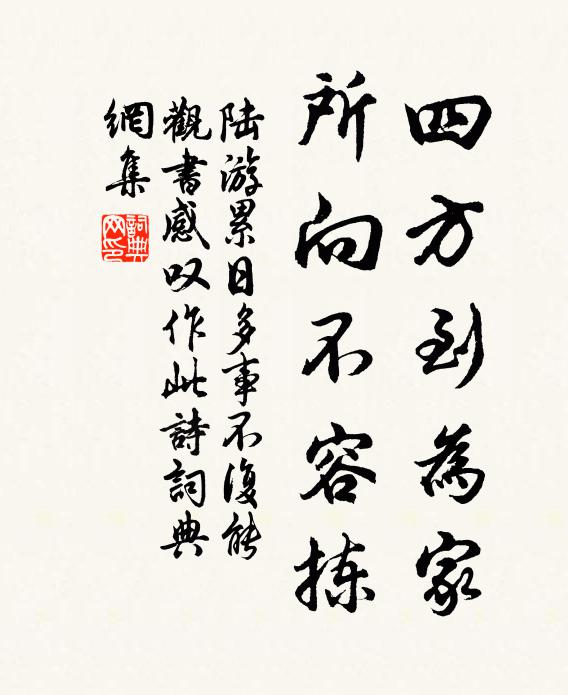 四方到為家
所向不容拣
陆游累日多事不復能
觀書感叹作此詩詞典
網集
詞典網印